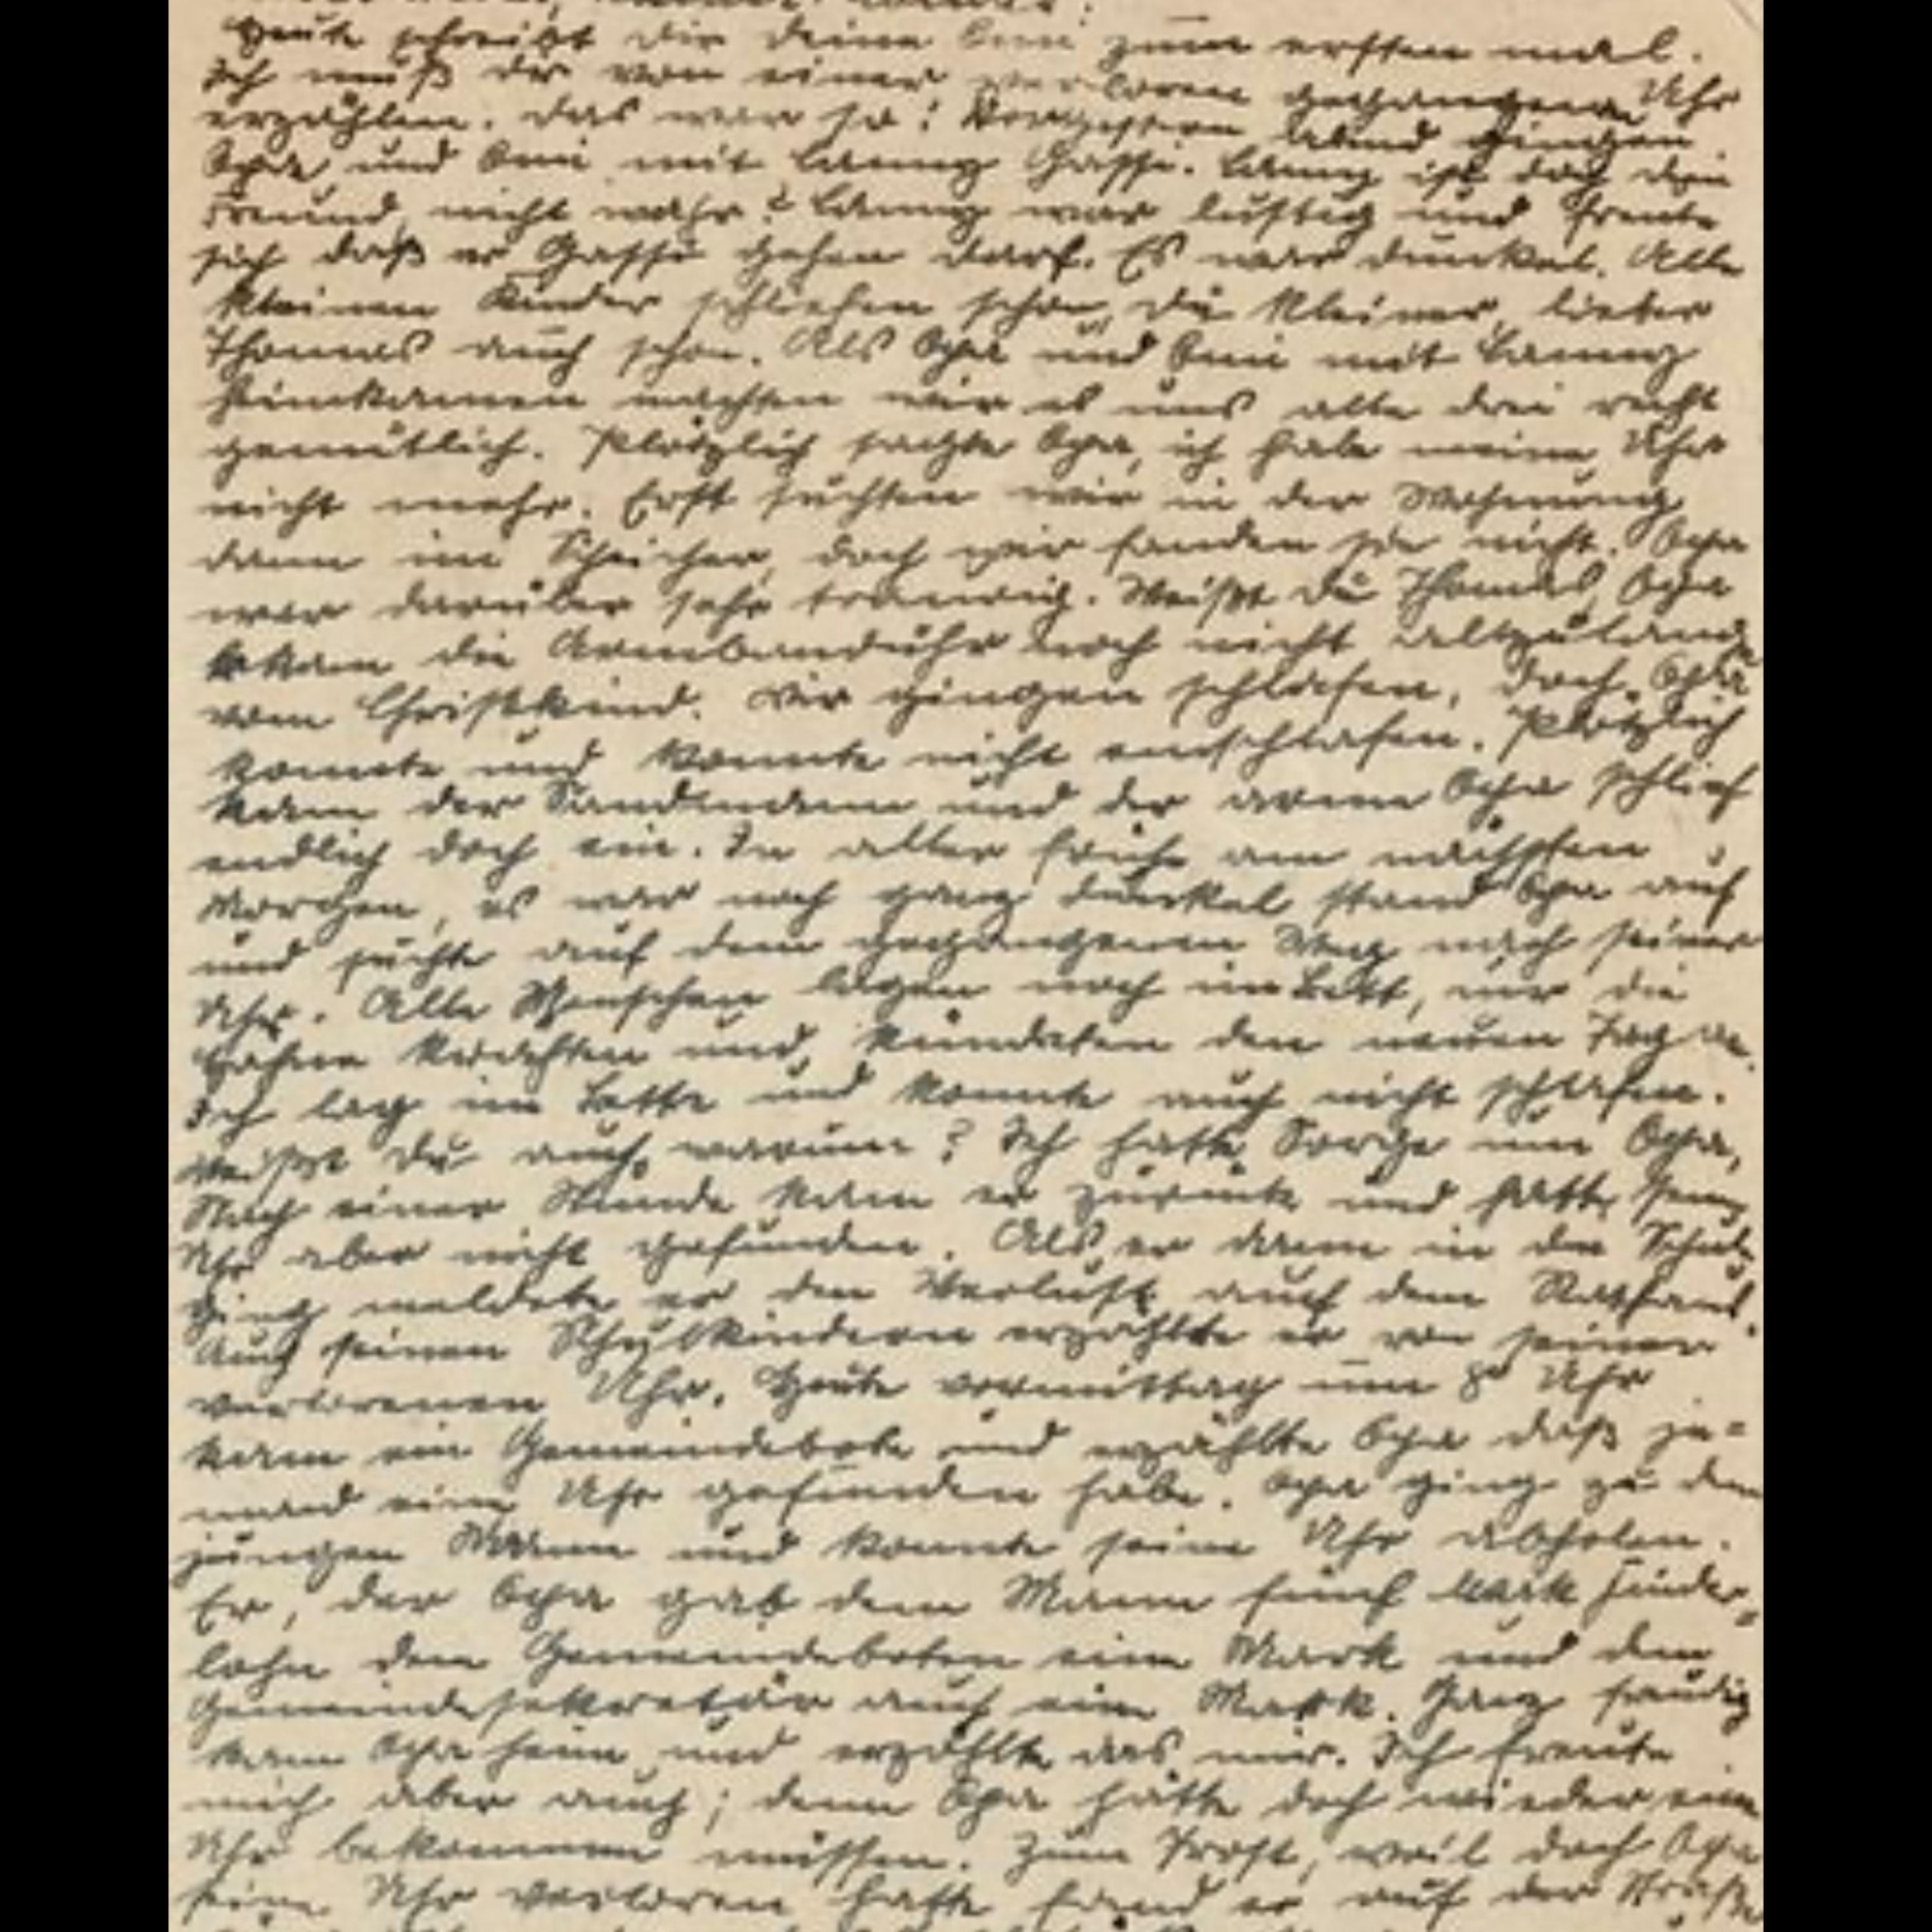 Heute schreibt dir deine Omi zum ersten mal.
Ich muß dir von einer verloren gegangenen Uhr
erzählen. Das war so: Vorgestern Abend gingen
Opa und Omi mit Lanny Gassi. Lanny ist doch dein
Freund, nicht wahr? Lanny war lustig und freute
sich daß er Gassi gehen darf. Es war dunkel. Alle
kleinen Kinder schliefen schon, du kleiner, lieber
Thomas auch schon. Als Opa und Omi mit Lanny
heimkamen machten wir es uns alle drei recht
gemütlich. Plötzlich sagte Opa, ich habe meine Uhr
nicht mehr. Erst suchten wir in der Wohnung
dann im Speicher, doch wir fanden sie nicht. Opa
war darüber sehr traurig. Weißt du Thomas, Opa
bekam die Armbanduhr noch nicht allzulange
vom Christkind. Wir gingen schlafen, doch Opa
konnte und konnte nicht einschlafen. Plötzlich
kam der Sandmann und der arme Opa schlief
endlich doch ein. In aller frühe am nächsten
Morgen, es war noch ganz dunkel stand Opa auf
und suchte auf dem gegangenen Weg nach seiner
Uhr. Alle Menschen lagen noch im Bett, nur die
Hähne krähten und kündeten den neuen Tag an.
Ich lag im Bette und konnte auch nicht schlafen.
Weißt du auch warum? Ich hatte Sorge um Opa,
Nach einer Stunde kam er zurück und hatte seine
Uhr aber nicht gefunden. Als er dann in die Schule
ging meldete er den Verlust auf dem Rathaus.
Auch seinen Schulkindern erzählte er von seiner
verlorenen Uhr. Heute vormittag um 8° Uhr
kam ein Gemeindebote und erzählte Opa daß je=
mand eine Uhr gefunden habe. Opa ging zu dem
jungen Mann und konnte seine Uhr abholen.
Er, der Opa gab dem Mann fünf Mark Finder=
lohn dem Gemeindeboten eine Mark und dem
Gemeindesekretär auch eine Mark. Ganz freudig
kam Opa heim und erzählte das mir. Ich freute
mich aber auch; denn Opa hätte doch wieder eine
Uhr bekommen müssen. Zum Trost, weil doch Opa
seine Uhr verloren hatte fand er auf der Straße